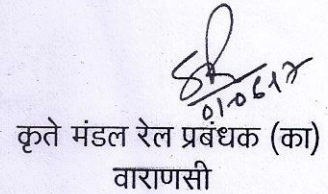 01-06-17
कृते मंडल रेल प्रबंधक (का)
वाराणसी